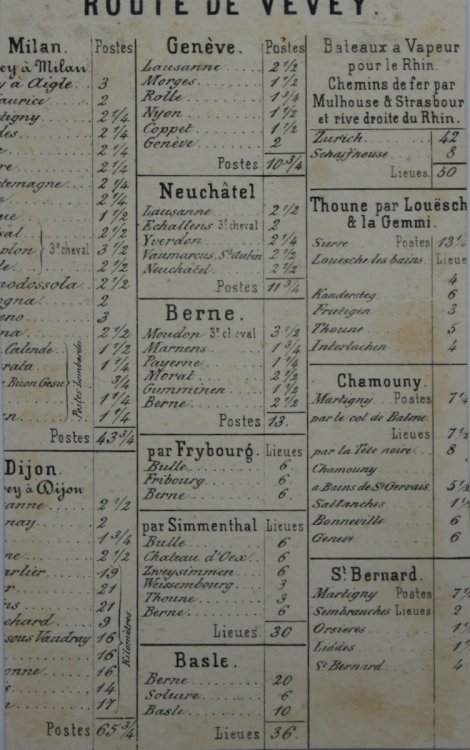 ROUTE DE VEVEY.
Milan. Postes
à Milan
à Aigle 3
2
2 1/4
2 1/4
2 1/4
2 1/4
2 1/4
2 1/4
1 1/2
2 1/2
3e cheval 3 1/2
2 1/2
2 1/2
2
3
2 1/2
Calende 1 1/2
1 1/4
Buon Gesu 3/4
1 1/4
1 1/4
Postes lombardes
Postes 43 3/4
Dijon.
à Dijon
2 1/2
2
1 3/4
2 1/2
19
21
21
9
sous Vaudray 16
16
16
14
17
Kilomètres
Postes 65 3/4
Genève. Postes
Lausanne 2 1/2
Morges 1 1/2
Rolle 1 3/4
Nyon 1 1/2
Coppet 1 1/2
Genève 2
Postes 10 3/4
Neuchâtel
Lausanne 2 1/2
Echallens 3e cheval 2
Yverdon 2 1/4
Vaumarcus, St Aubin 2 1/2
Neuchâtel 2 1/2
Postes 11 3/4
Berne.
Moudon 3e cheval 3 1/2
Marnens 1 3/4
Payerne 1 1/4
Morat 2 1/2
Gumminen 1 1/2
Berne 2 1/2
Postes 13.
par Frybourg. Lieues
Bulle 6
Fribourg 6
Berne 6
par Simmenthal Lieues
Bulle 6
Chateau d'Oex 6
Zweysimmen 6
Weissembourg 3
Thoune 3
Berne 6
Lieues 30
Basle.
Berne 20
Soleure 6
Basle 10
Lieues 36.
Bateaux à Vapeur
pour le Rhin.
Chemins de fer par
Mulhouse & Strasbour
et rive droite du Rhin.
Zurich 42
Schaffhouse 8
Lieues 50
Thoune par Louësch
& la Gemmi.
Sierre Postes 13 1/4
Louesche les bains Lieue
4
Kandersteg 6
Frutigen 3
Thoune 5
Interlachen 4
Chamouny.
Martigny Postes 7 1/4
par le col de Balme
Lieues 7 1/2
par la Tête noire 8
Chamouny
a Bains de St Gervais 5 1/2
Sallanches 1 1/2
Bonneville 6
Genev 6
St Bernard.
Martigny Postes 7 1/4
Sembrauches Lieues 2
Orsieres 1 1/2
Liddes 1 1/2
St Bernard 4